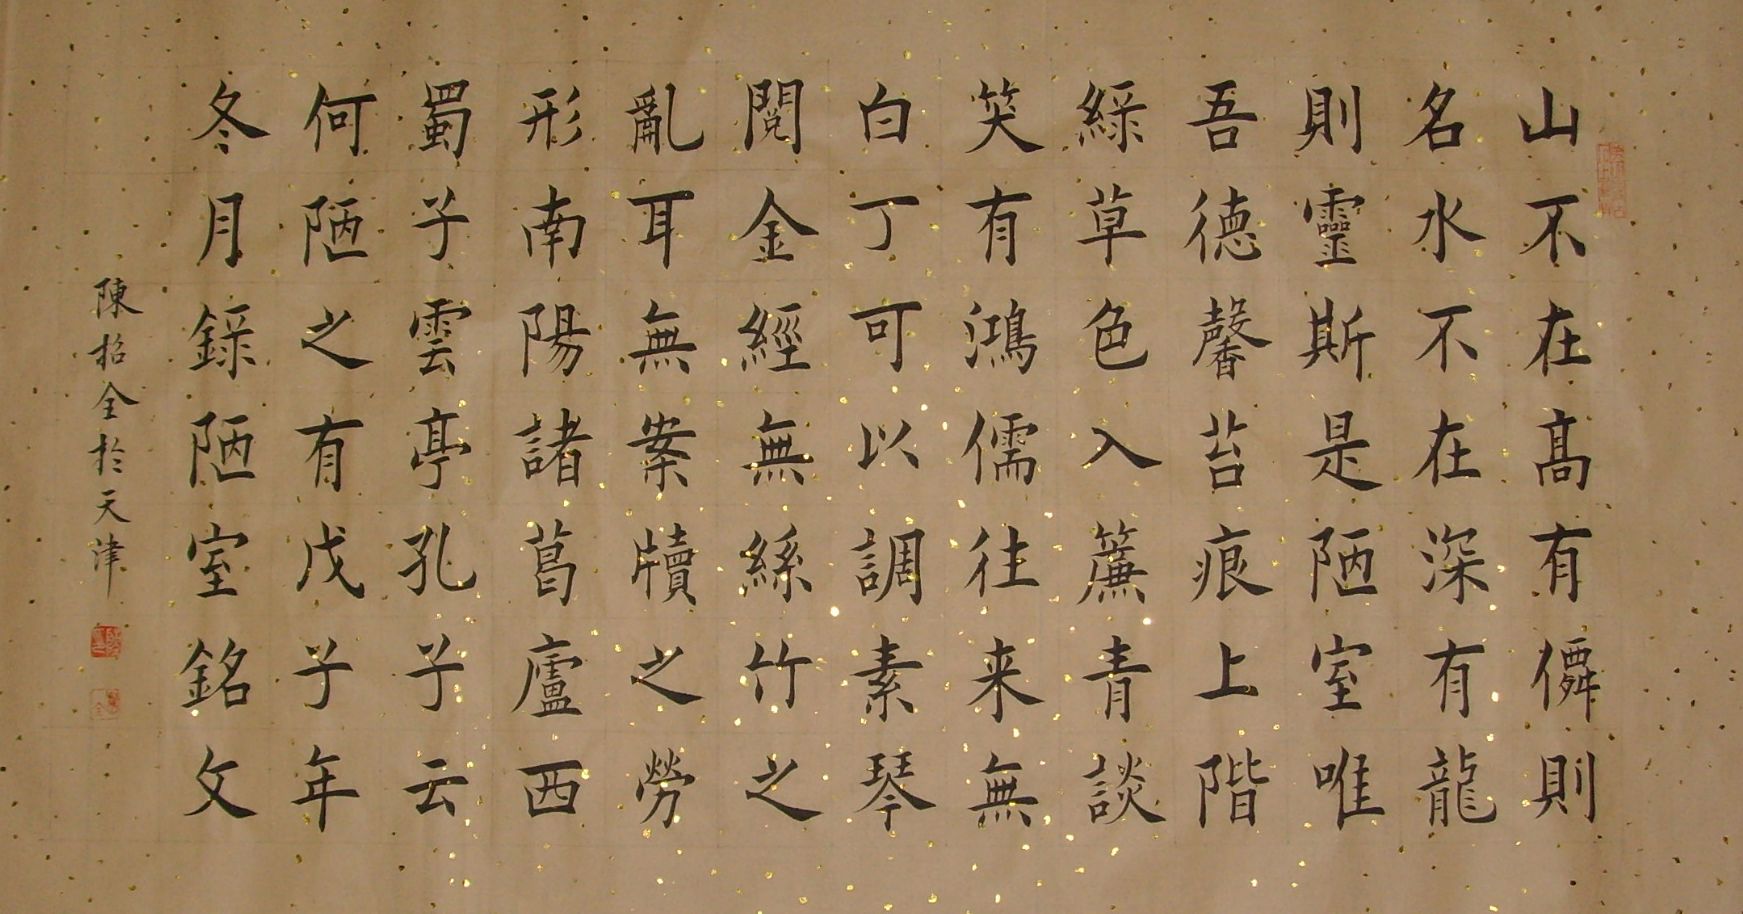 山不在高有僊則
名水不在深有龍
則靈斯是陋室唯
吾德馨苔痕上階
綠草色入簾青談
笑有鴻儒往来無
白丁可以調素琴
閱金經無絲竹之
亂耳無案牘之勞
形南陽諸葛廬西
蜀子雲亭孔子云
何陋之有戊子年
冬月錄陋室銘文
陳招全於天津